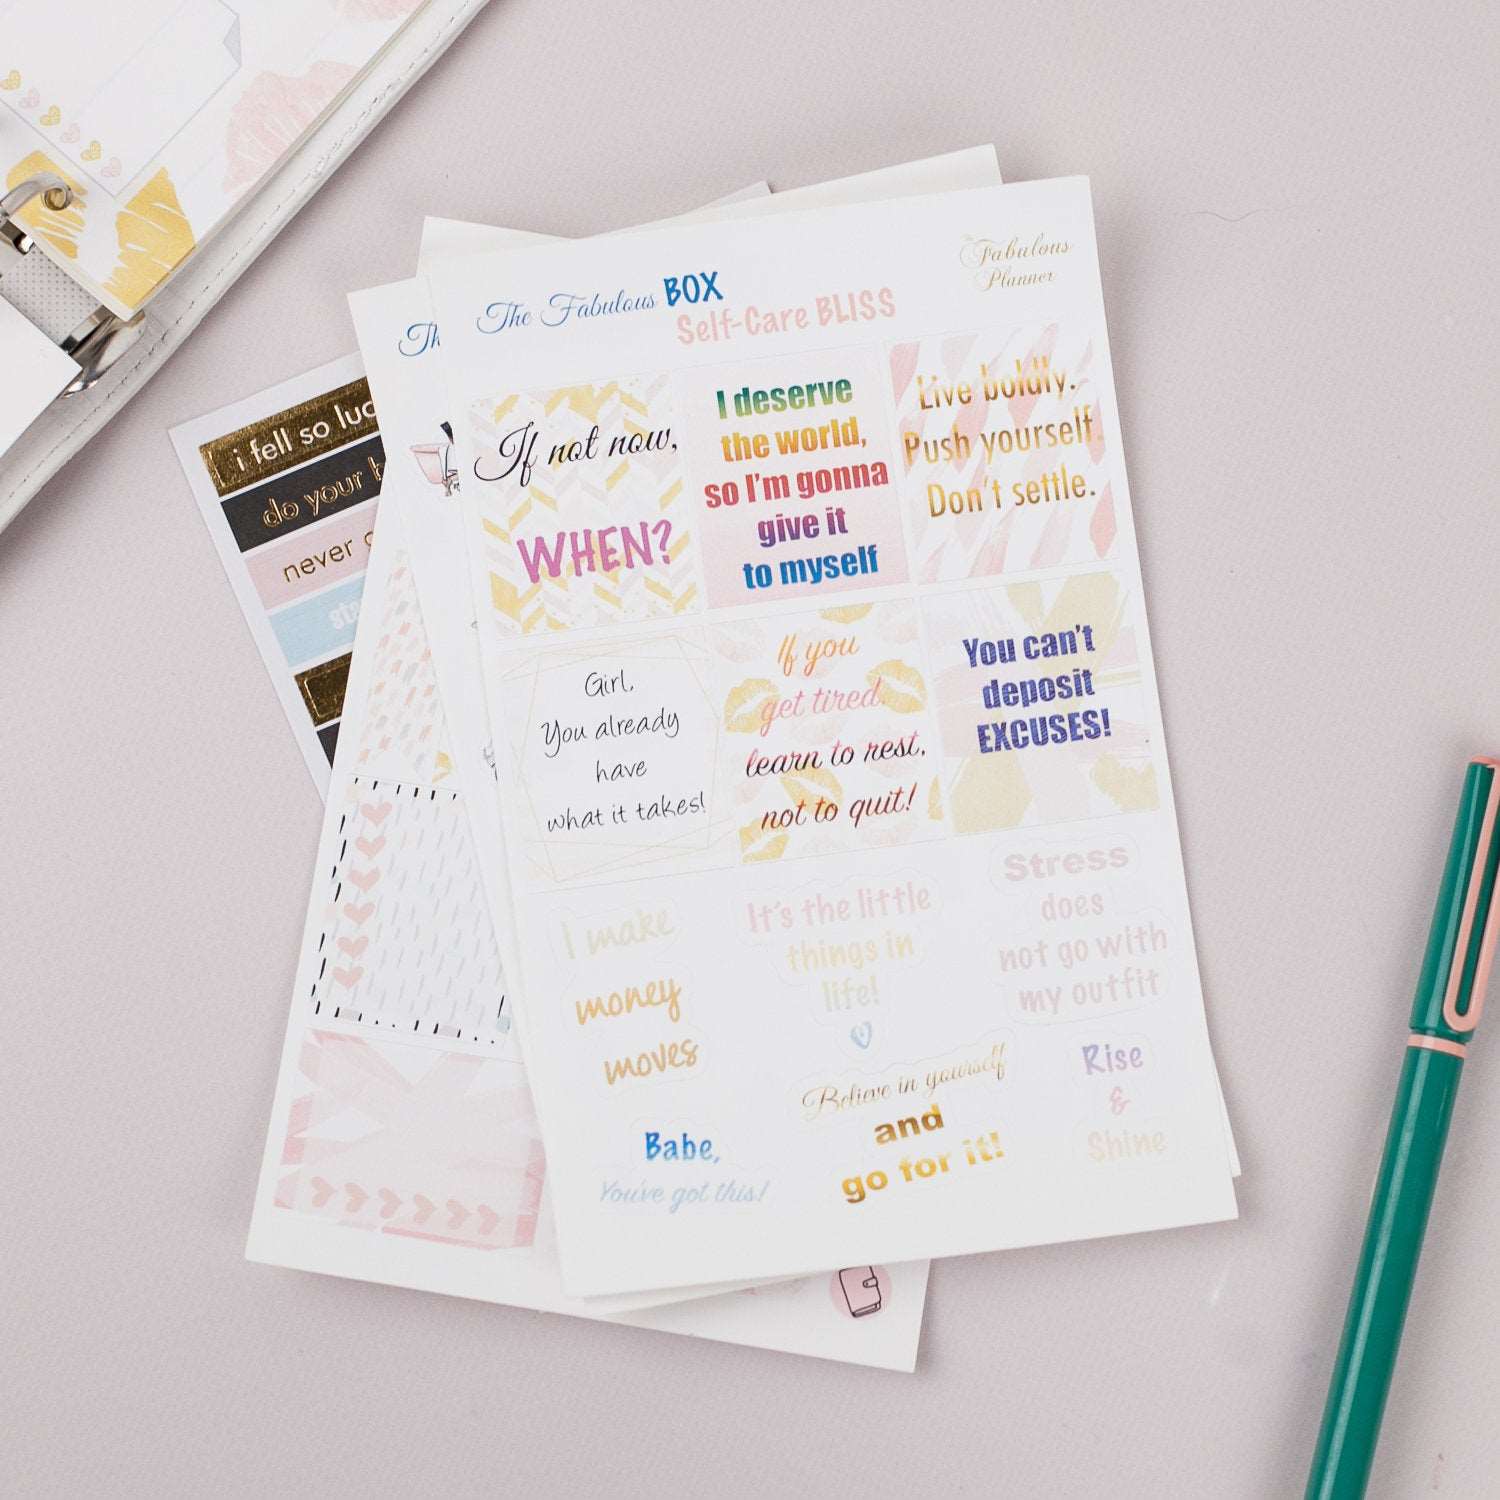 The Fabulous BOX
Self-Care BLISS
The
Fabulous
Planner
If not now,
WHEN?
I deserve
the world,
so I'm gonna
give it
to myself
Live boldly.
Push yourself.
Don't settle.
Girl,
You already
have
what it takes!
If you
get tired,
learn to rest,
not to quit!
You can't
deposit
EXCUSES!
I make
money
moves
It's the little
things in
life!
Stress
does
not go with
my outfit
Babe,
You've got this!
Believe in yourself
and
go for it!
Rise
&
Shine
i fell so
do your
never